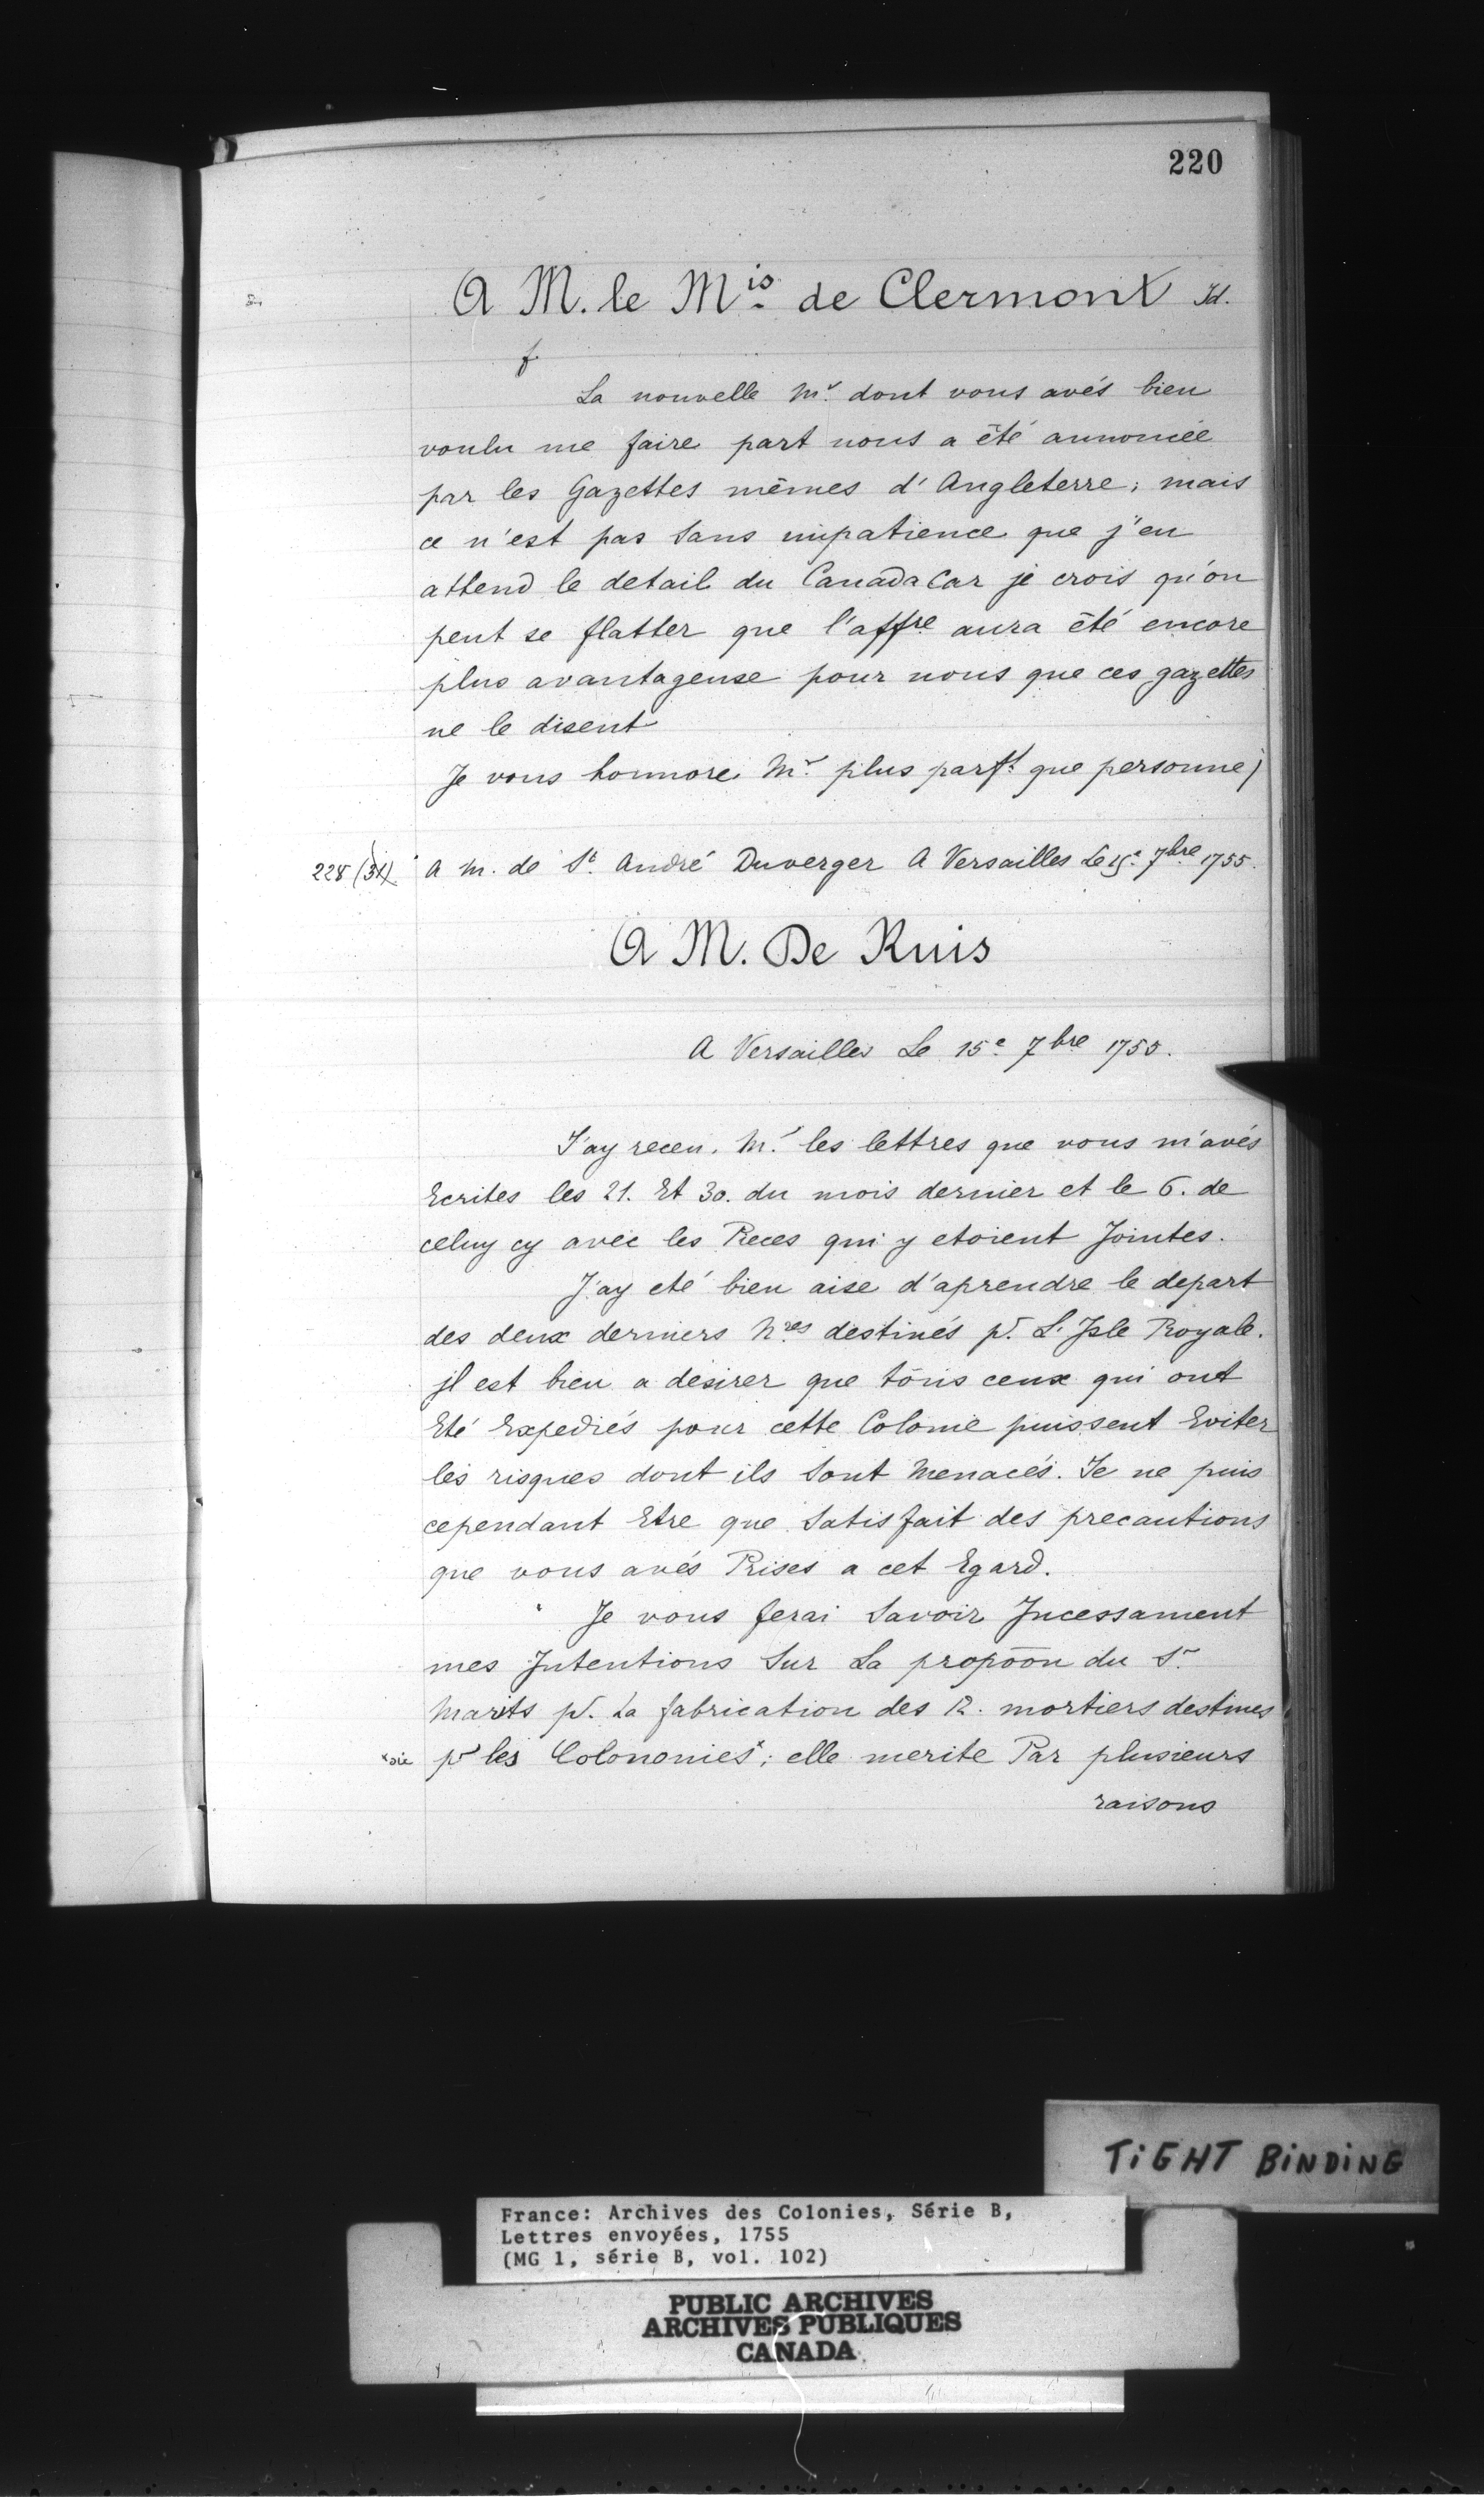 220
A M. le M.is de Clermont Id.
La nouvelle M.r dont vous avés bien
voulu me faire part nous a été annoncée
par les Gazettes mêmes d'Angleterre; mais
ce n'est pas sans impatience que j'en
attend le detail du Canada Car je crois qu'on
peut se flatter que l'affre aura été encore
plus avantageuse pour nous que ces gazettes
ne le disent
Je vous honnore M.r plus parft. que personne)
228 A M. de St. André Duverger A Versailles Le 15e 7bre 1755.
A M. De Ruis
A Versailles Le 15e 7bre 1755.
J'ay receu. M.r les lettres que vous m'avés
Ecrites les 21. Et 30. du mois dernier et le 6. de
celuy cy avec les Pieces qui y etoient Jointes.
J'ay eté bien aise d'aprendre le depart
des deux derniers N.res destinés pr. L'Isle Royale.
il est bien a desirer que tous ceux qui ont
Eté Expediés pour cette Colonie puissent Eviter
les risques dont ils sont Menacés. Je ne puis
cependant Etre que satisfait des precautions
que vous avés Prises a cet Egard.
Je vous ferai Savoir Incessament
mes Intentions Sur La propōōn du Sr.
Marits pr. La fabrication des 12. mortiers destinés
x sic pr les Colononies x; elle merite Par plusieurs
raisons
TiGHT BiNDiNG
France: Archives des Colonies, Série B,
Lettres envoyées, 1755
(MG 1, série B, vol. 102)
PUBLIC ARCHIVES
ARCHIVES PUBLIQUES
CANADA